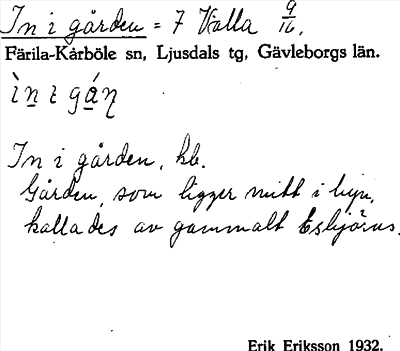 In i gården = 7 Valla 9/16.
Färila-Kårböle sn, Ljusdals tg, Gävleborgs län.
ìn i gán
In i gården, kb.
Gården, som ligger mitt i byn,
kallades av gammalt Esbjörns.
Erik Eriksson 1932.